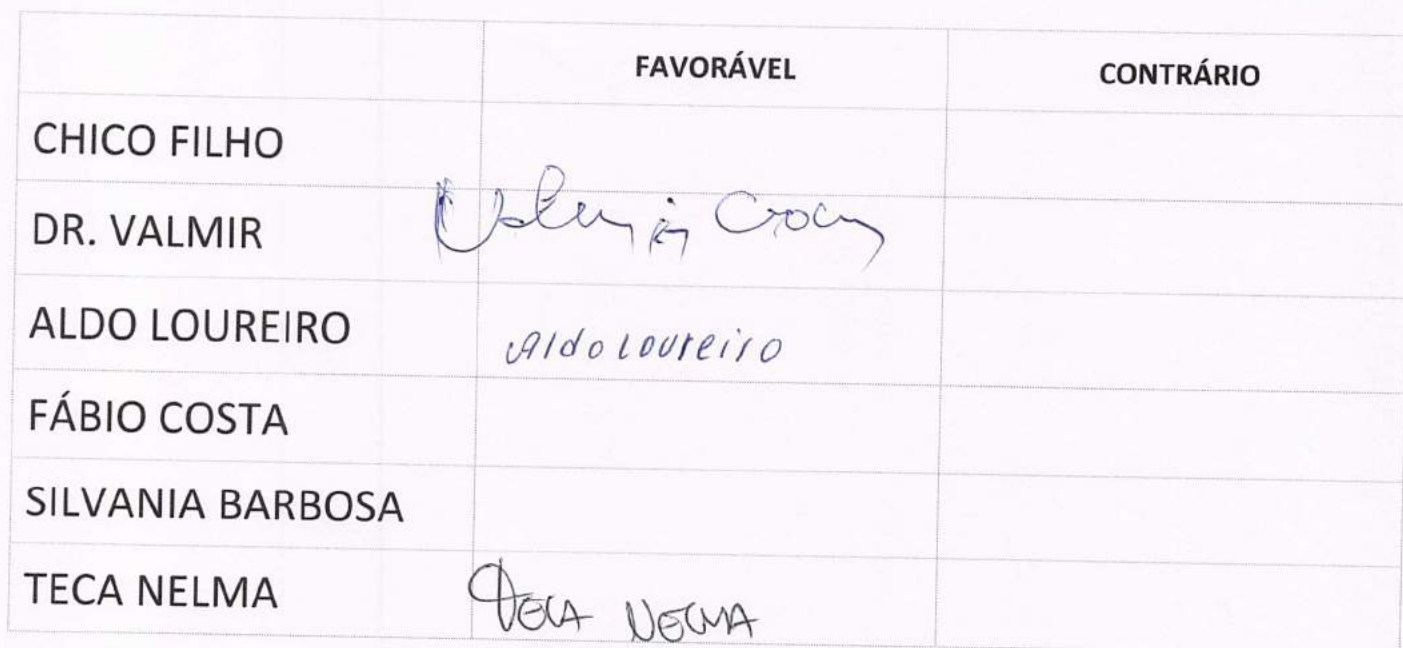 FAVORÁVEL CONTRÁRIO
CHICO FILHO
DR. VALMIR
ALDO LOUREIRO Aldo Loureiro
FÁBIO COSTA
SILVANIA BARBOSA
TECA NELMA TECA NELMA